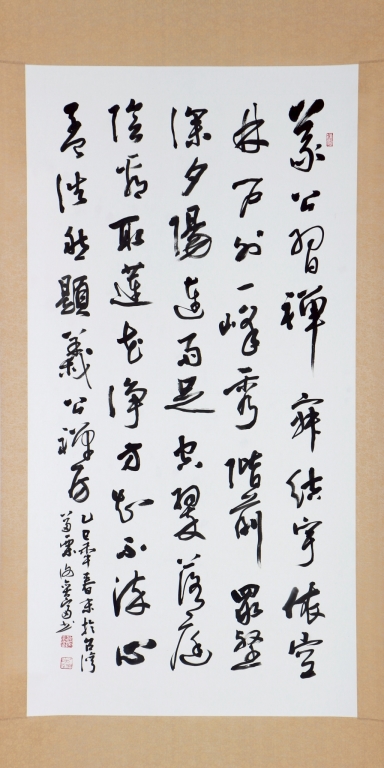 義公習禪寂結宇依空
林戶外一峰秀階前眾壑
深夕陽連雨足空翠落庭
陰看取蓮花淨方知不染心
孟浩然題義公禪房
乙巳年春末於台灣
苗栗海富书